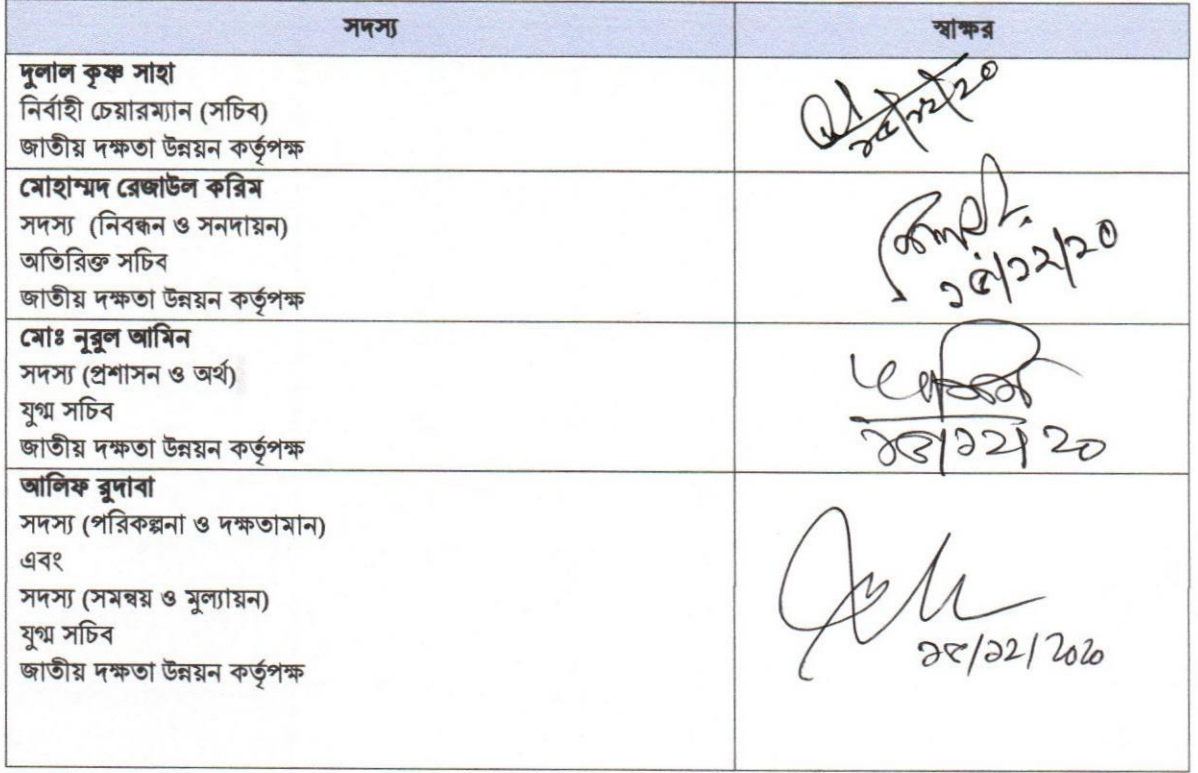 সদস্য
স্বাক্ষর
দুলাল কৃষ্ণ সাহা
নির্বাহী চেয়ারম্যান (সচিব)
জাতীয় দক্ষতা উন্নয়ন কর্তৃপক্ষ
১৫/১২/২০
মোহাম্মদ রেজাউল করিম
সদস্য (নিবন্ধন ও সনদায়ন)
অতিরিক্ত সচিব
জাতীয় দক্ষতা উন্নয়ন কর্তৃপক্ষ
১৫/১২/২০
মোঃ নূরুল আমিন
সদস্য (প্রশাসন ও অর্থ)
যুগ্ম সচিব
জাতীয় দক্ষতা উন্নয়ন কর্তৃপক্ষ
১৫/১২/২০
আলিফ রুদাবা
সদস্য (পরিকল্পনা ও দক্ষতামান)
এবং
সদস্য (সমন্বয় ও মুল্যায়ন)
যুগ্ম সচিব
জাতীয় দক্ষতা উন্নয়ন কর্তৃপক্ষ
১৫/১২/২০২০